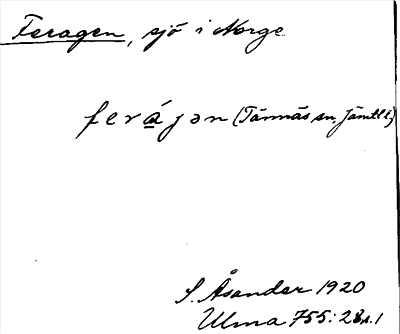 Feragen, sjö i Norge
ferájən (Tännäs sn, Jämtl l.)
S. Åsander 1920
Ulma 755: 28 s. 1